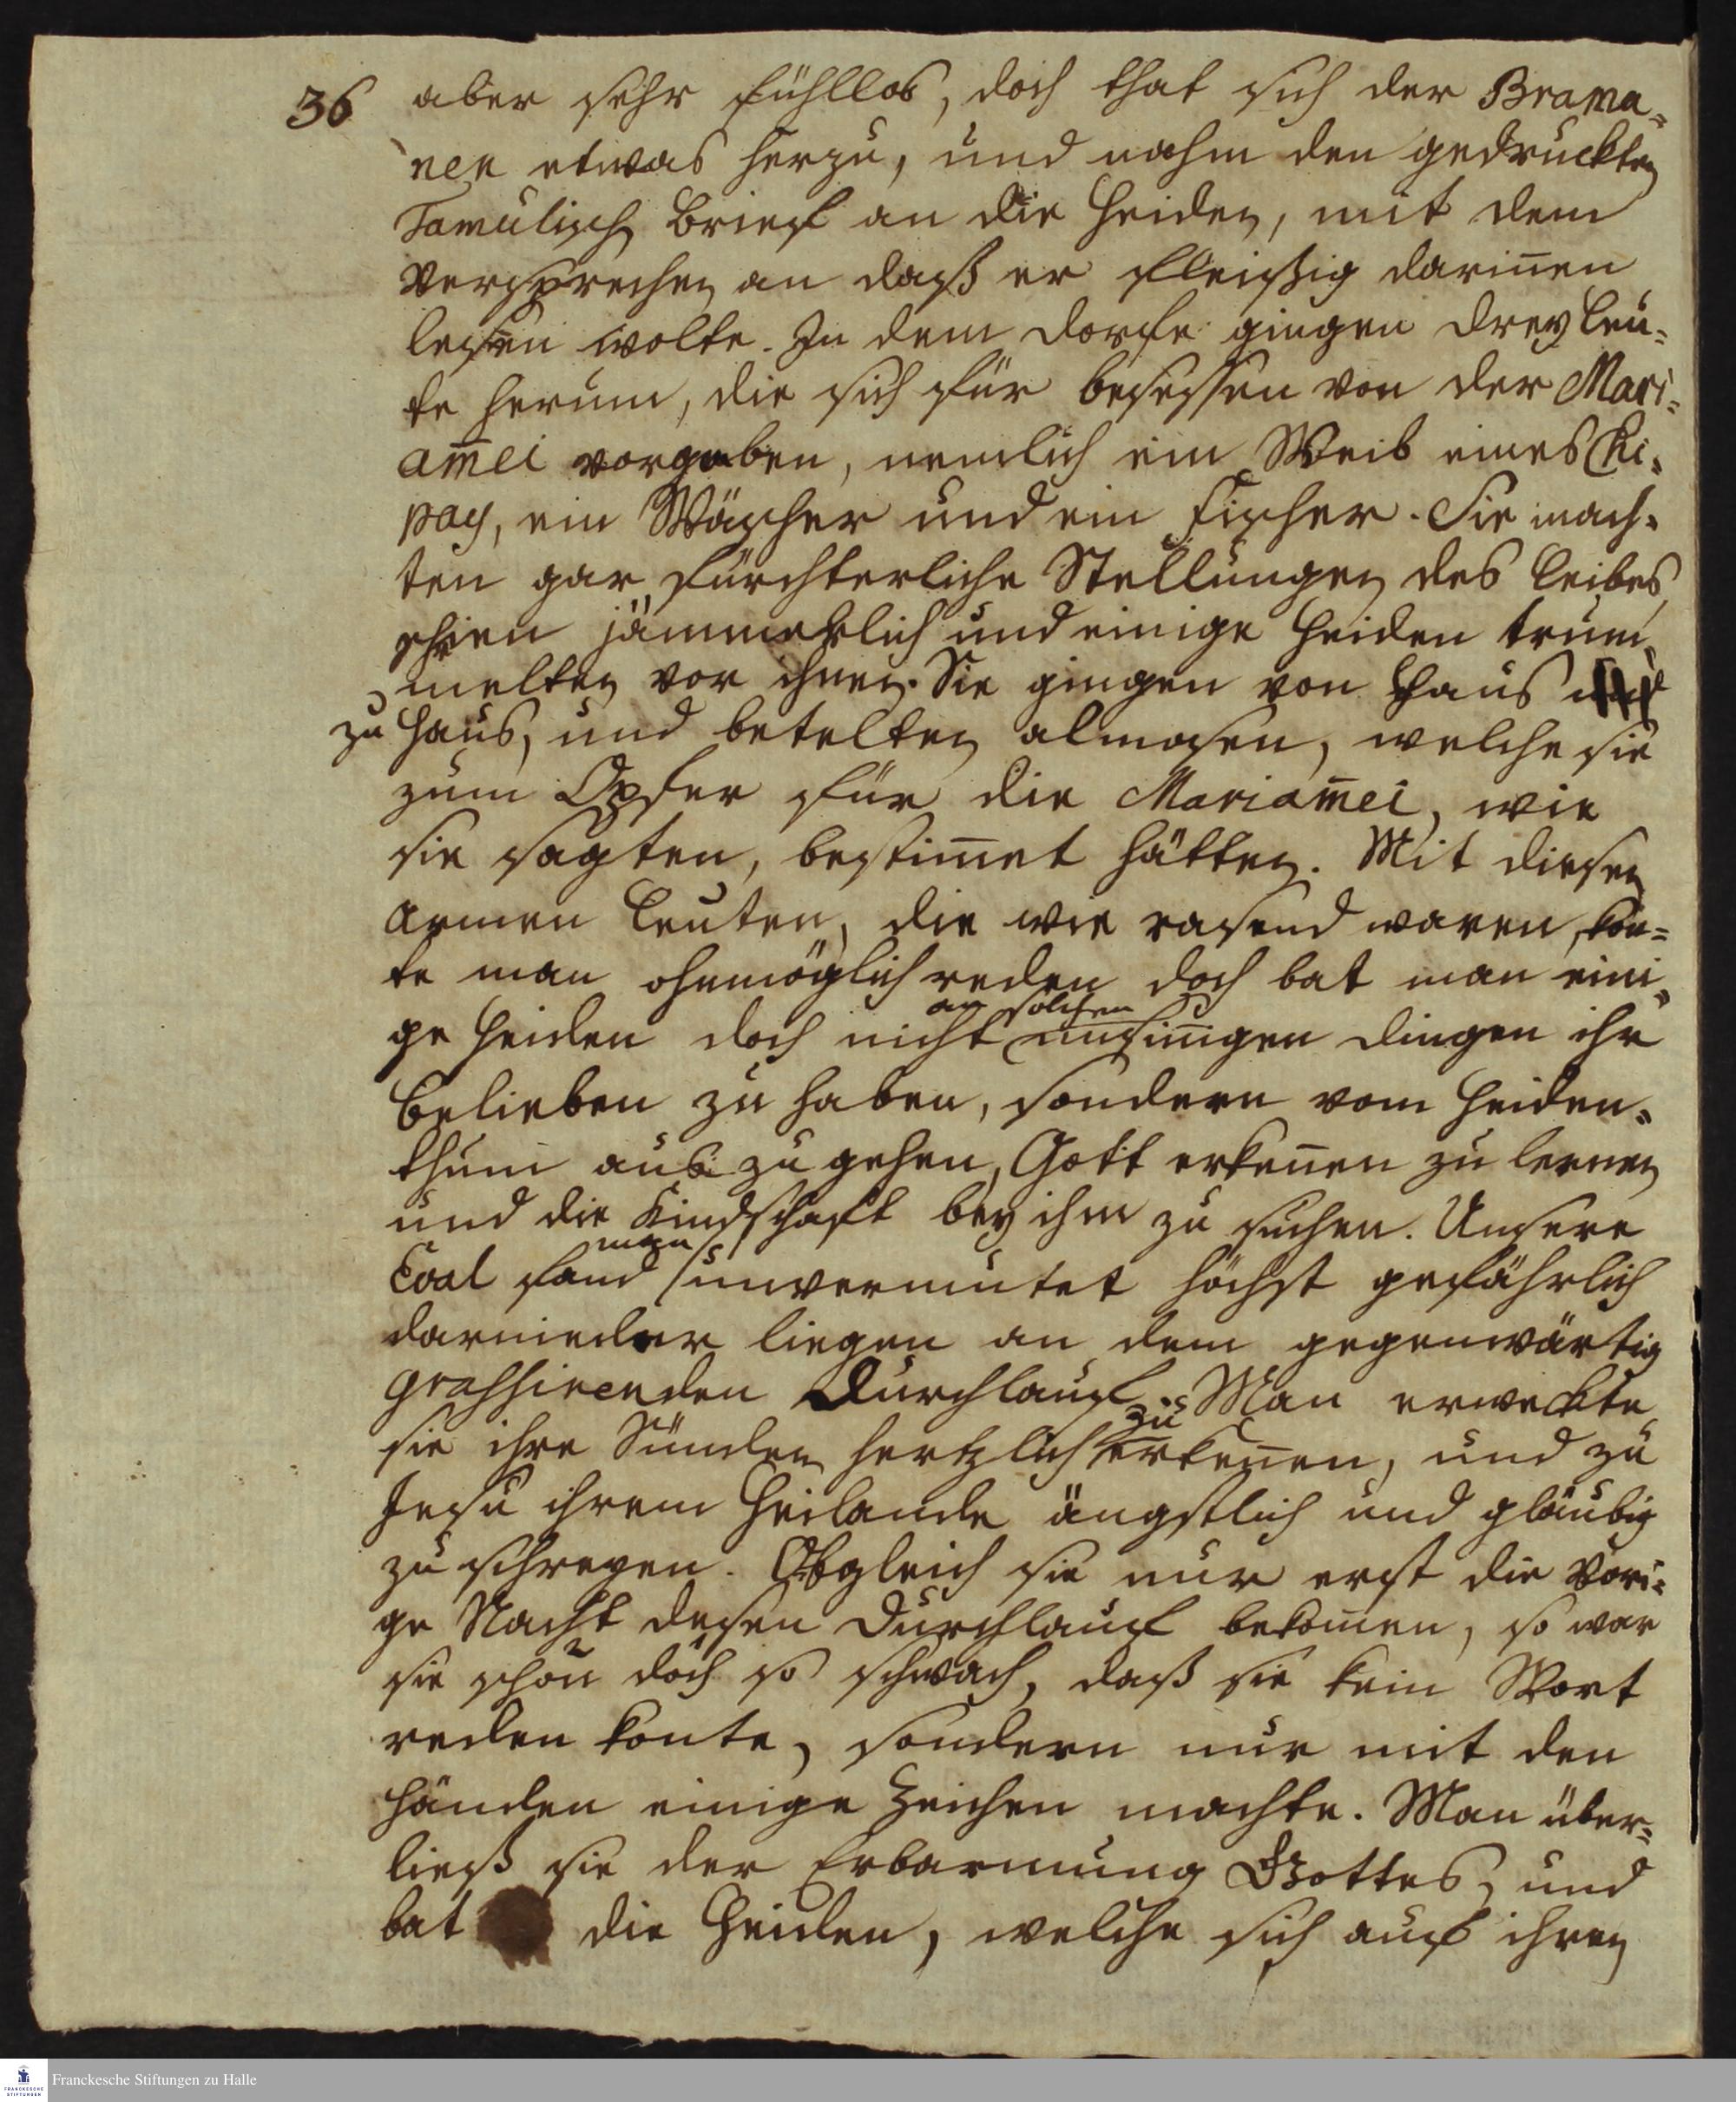 36 aber sehr fühllos, doch that sich der Brama-
nen etwas herzu, und nahm den gedruckten
Tamulisch Brief an die Heiden, mit dem
Versprechen an daß er fleißig darin̄en
lesen wolte. In dem Dorfe gingen drey Leu-
te herum, die sich für besessen von der Mari-
am̄ei vorgaben, nemlich ein Weib eines Chi-
pay, ein Wäscher und ein Fischer. Sie mach-
ten gar fürchterliche Stellungen des Leibes,
schrien jämmerlich und einige Heiden trum-
melten vor ihnen. Sie gingen von Haus
zu Haus, und betelten almosen, welche sie
zum Opfer für die Mariam̄ei, wie
sie sagten, bestim̄et hätten. Mit diesen
armen Leuten, die wie rasend waren, kon-
te man ohnmöglich reden doch bat man eini-
ge Heiden doch nicht an solchen unsin̄igen Dingen ihr
Belieben zu haben, sondern vom Heiden-
thum aus zu gehen, Gott erken̄en zu lernen
und die Kindschaft bey ihm zu suchen. Unsere
Eval fand man unvermutet höchst gefährlich
darnieder liegen an dem gegenwärtig
grassirenden Durchlauf. Man erweckte
sie ihre Sünden hertzlich zu erken̄en, und zu
Jesu ihrem Heilande ängstlich und gläubig
zu schreyen. Obgleich sie nur erst die vori-
ge Nacht desen Durchlauf bekom̄en, so war
sie schon doch so schwach, daß sie kein Wort
reden konte, sondern nur mit den
Händen einige Zeichen machte. Man über-
ließ sie der Erbarmung Gottes, und
bat die Heiden, welche sich auf ihren
Franckesche Stiftungen zu Halle
FRANCKESCHE
STIFTUNGEN